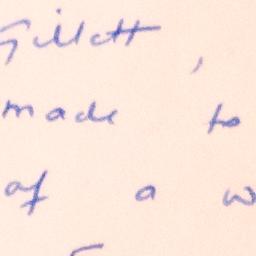 Gillett,
made to
of a w